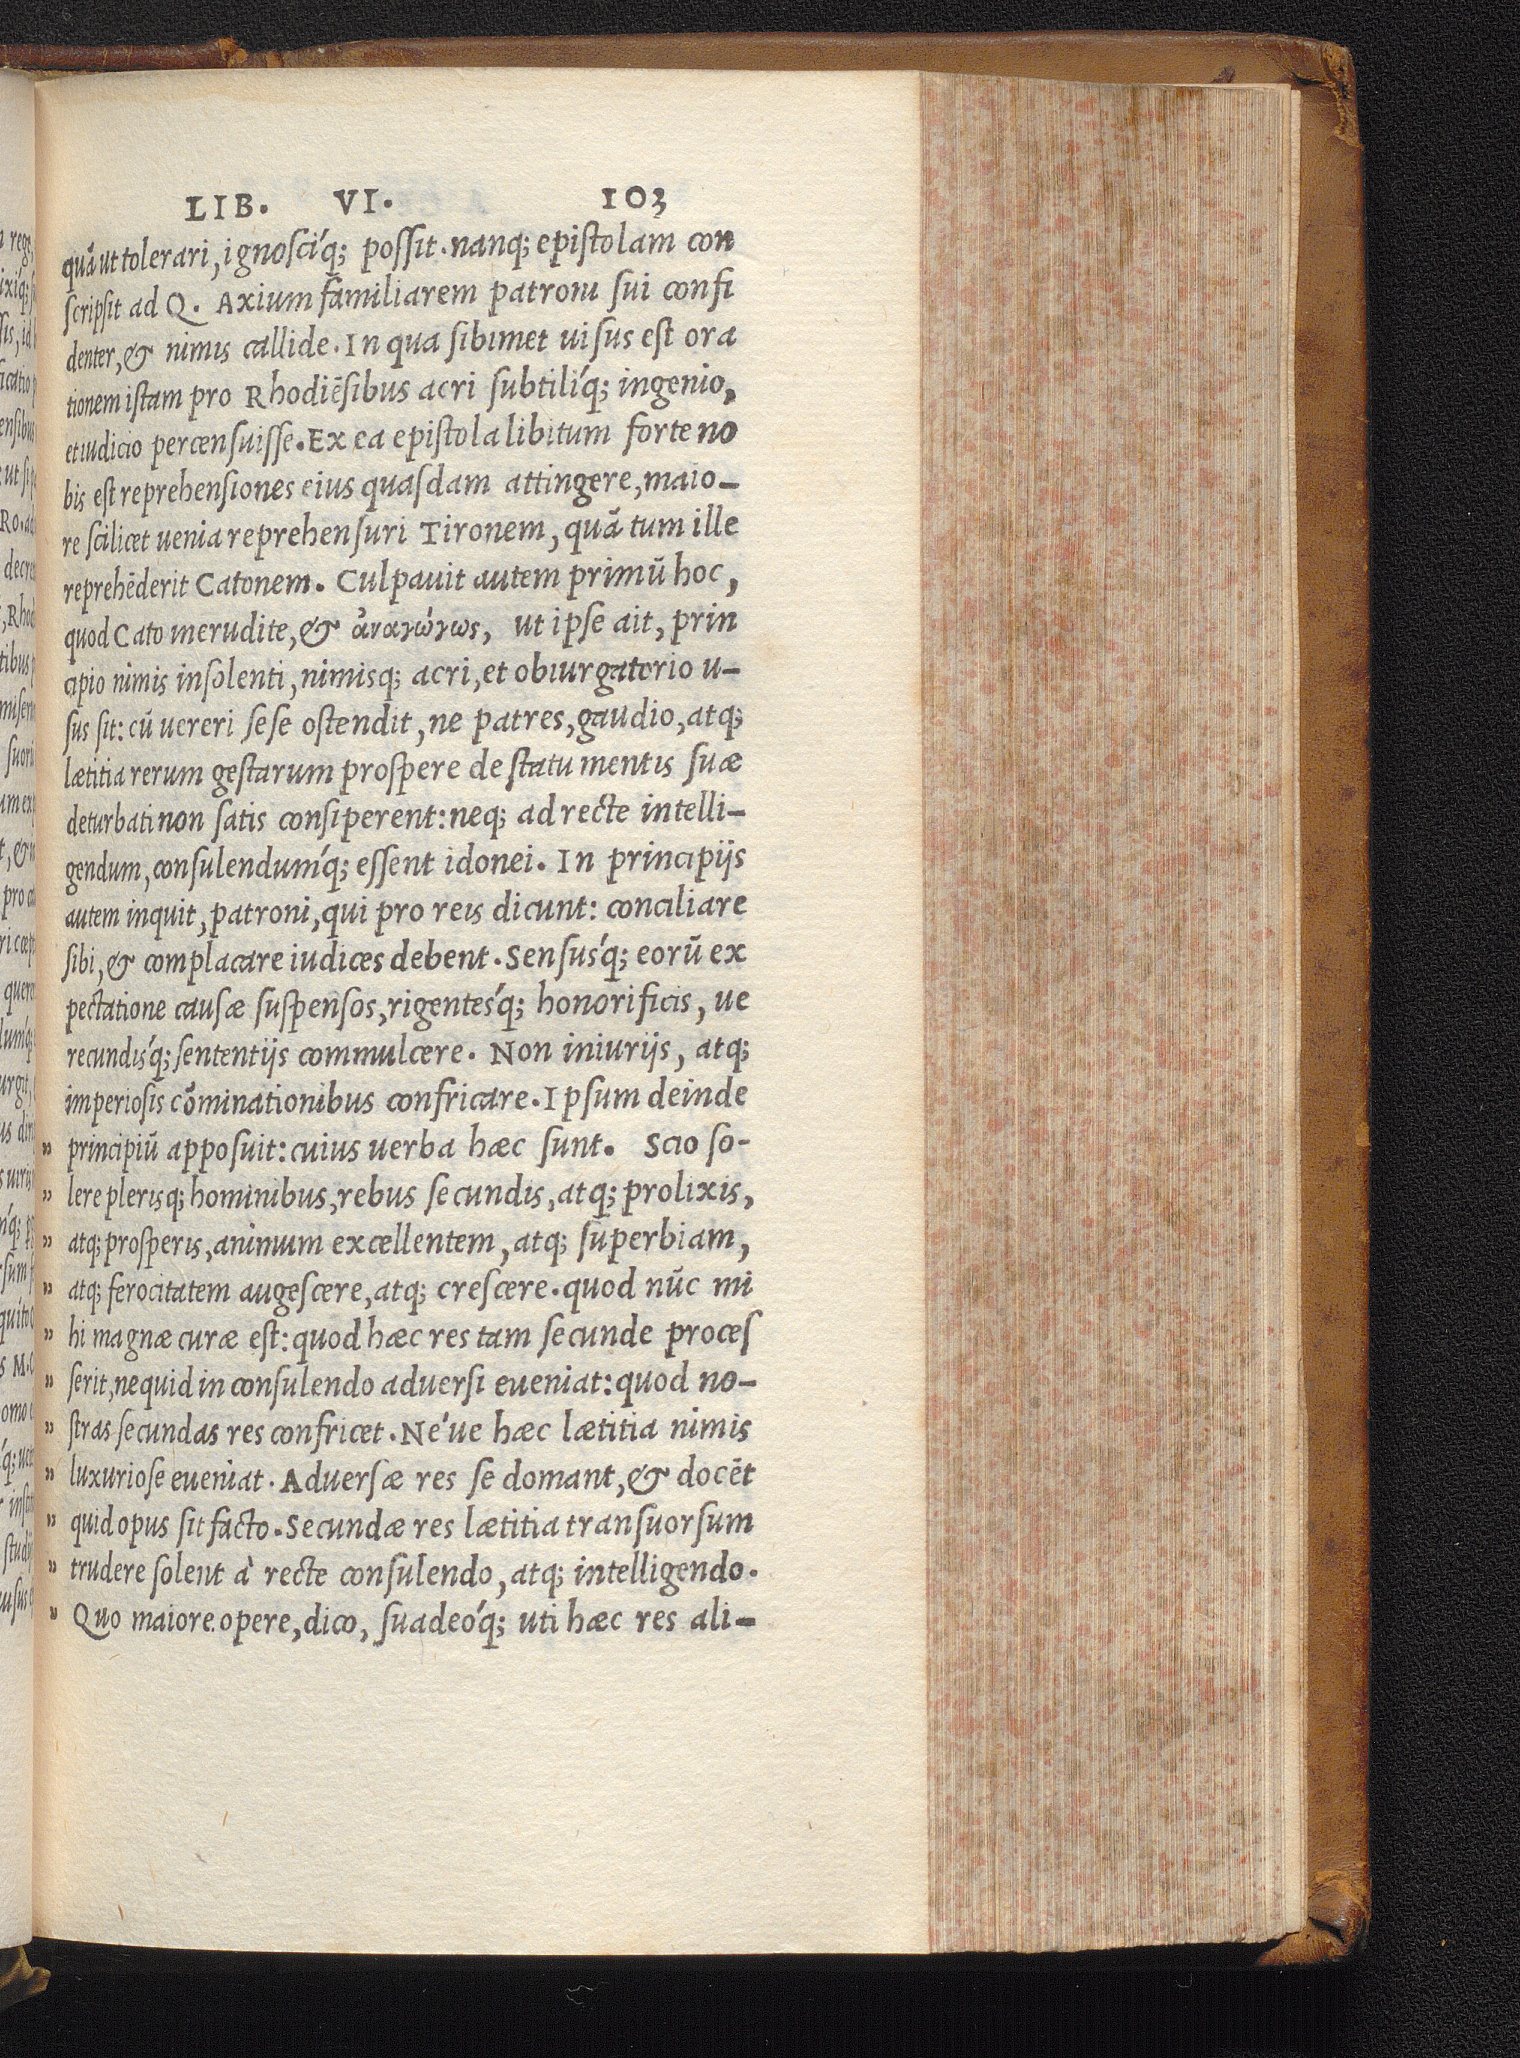 LIB. VI. 103
quã ut tolerari, ignosciq́; possit. nanq; epistolam con
scripsit ad Q. Axium familiarem patroni sui confi
denter, & nimis callide. In qua sibimet uisus est ora
tionem istam pro Rhodiẽsibus acri subtiliq́; ingenio,
et iudicio percensuisse. Ex ea epistola libitum forte no
bis est reprehensiones eius quasdam attingere, maio-
re scilicet uenia reprehensuri Tironem, quã tum ille
reprehẽderit Catonem. Culpauit autem primũ hoc,
quod Cato inerudite, & ἀναγώγως, ut ipse ait, prin
cipio nimis insolenti, nimisq; acri, et obiurgatorio u-
sus sit: cũ uereri sese ostendit, ne patres, gaudio, atq;
lætitia rerum gestarum prospere de statu mentis suæ
deturbati non satis consiperent: neq; ad recte intelli-
gendum, consulendumq́; essent idonei. In principijs
autem inquit, patroni, qui pro reis dicunt: conciliare
sibi, & complacare iudices debent. Sensusq́; eorũ ex
pectatione causæ suspensos, rigentesq́; honorificis, ue
recundisq́; sententijs commulcere. Non iniurijs, atq;
imperiosis cõminationibus confricare. Ipsum deinde
" principiũ apposuit: cuius uerba hæc sunt. Scio so-
" lere plerisq; hominibus, rebus secundis, atq; prolixis,
" atq; prosperis, animum excellentem, atq; superbiam,
" atq; ferocitatem augescere, atq; crescere. quod nũc mi
" hi magnæ curæ est: quod hæc res tam secunde proces
" serit, ne quid in consulendo aduersi eueniat: quod no-
" stras secundas res confricet. Né ue hæc lætitia nimis
" luxuriose eueniat. Aduersæ res se domant, & docẽt
" quid opus sit facto. Secundæ res lætitia transuorsum
" trudere solent à recte consulendo, atq; intelligendo.
" Quo maiore opere, dico, suadeoq́; uti hæc res ali-